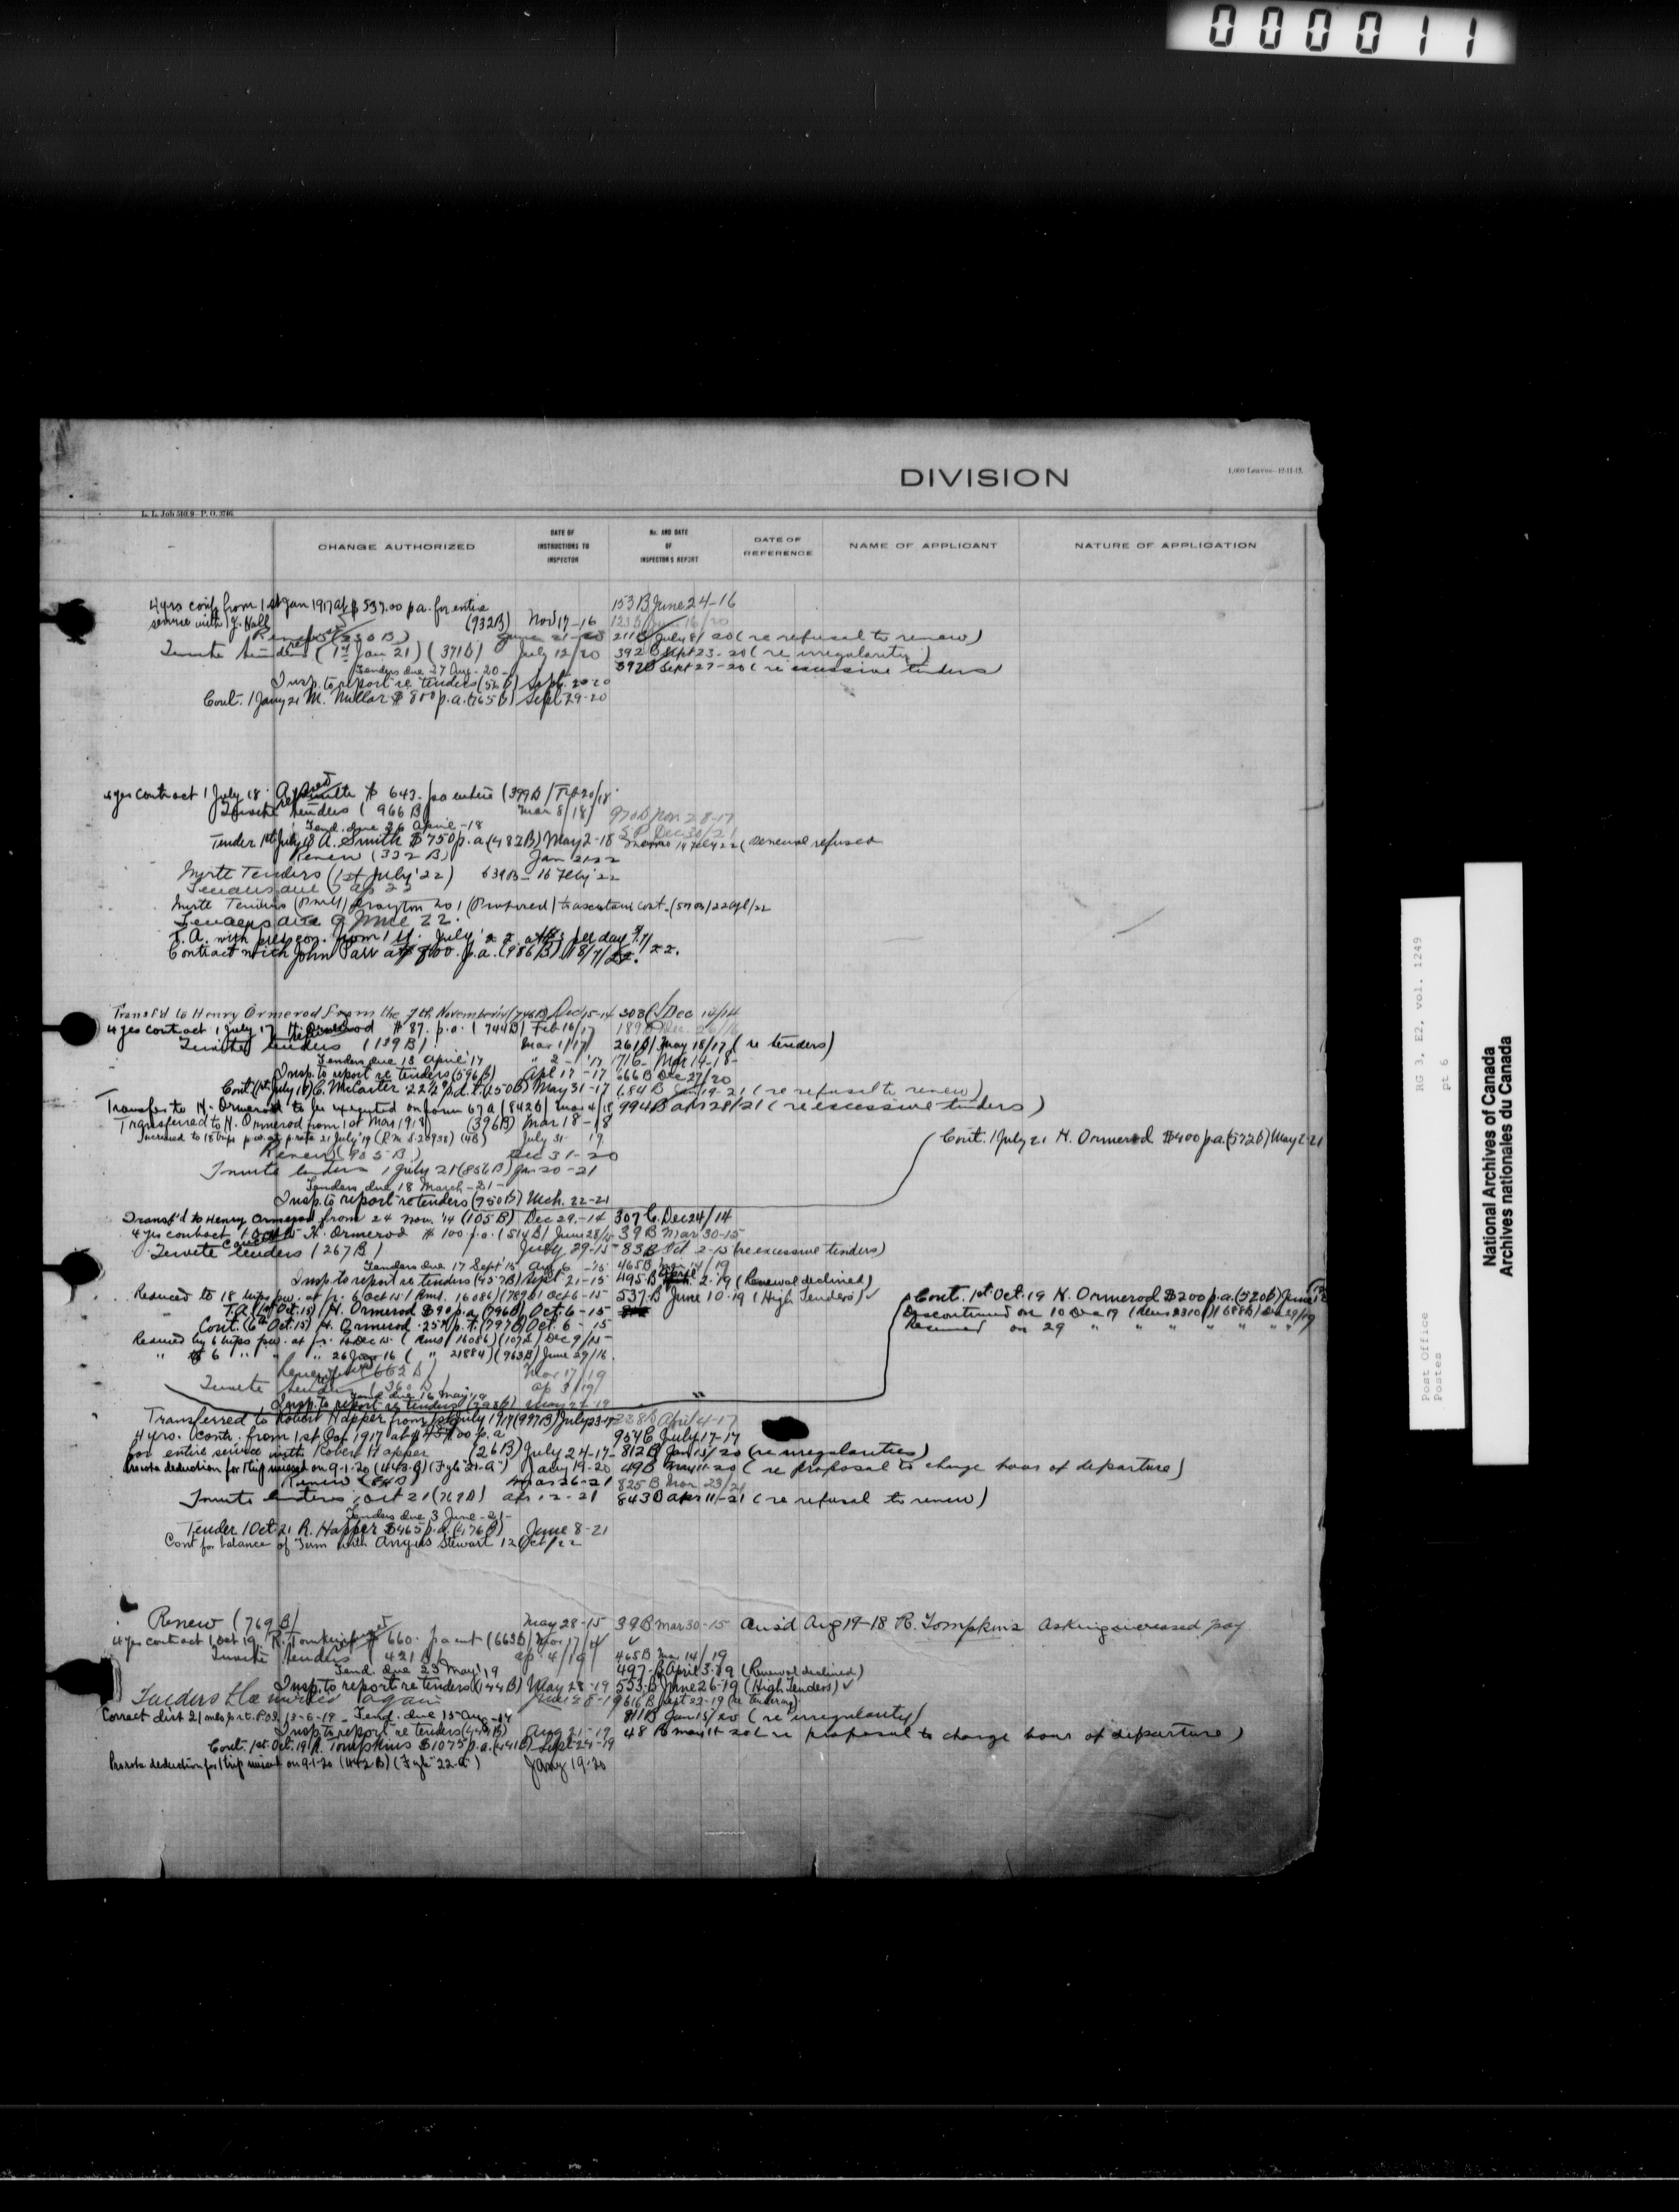 000011
DIVISION
1,000 Leaves—12-11-13.
L. L. Job 510.9—P. O. 3746
CHANGE AUTHORIZED
DATE OF INSTRUCTIONS TO INSPECTOR
No. AND DATE OF INSPECTOR'S REPORT
DATE OF REFERENCE
NAME OF APPLICANT
NATURE OF APPLICATION
4 yrs cont. from 1st Jan 1917 at $537.00 p a. for entire 153 B June 24-16
service with J. Hall (932B) Nov 17-16
Renew (230B) June 21-20 211B July 8/20 (re refusal to renew)
Invite tenders (1st Jan 21) (371B) July 12/20 392B Sept 23-20 (re irregularity)
Tenders due 27 Aug-20 397B Sept 27-20 (re excessive tenders
Insp. to report re tenders (56B) Sept. 20-20
Cont. 1 Jany 21 M. Millar $800 p.a. (765B) Sept 29-20
4 yrs contract 1 July 18 A Smith $643. pa entire (399B) Feb 20/18
Invite tenders (966B) Mar 8/18 970B Nov 28-17
Tend. due 26 April-18 S.P. Dec 30/21
Tender 1st July 18 A. Smith $750 p.a. (482B) May 2-18 Memo 14 Feb 22 (Renewal refused
Renew (332B) Jan 21-22
Invite Tenders (1st July '22) 639B-16 Feby '22
Tenders due 7 Ap 22
Tenders due 9 June 22.
T. A. with pres con. from 1st July '22 at $3 per day
Contract with John Parr at $800. p.a. (986B) 18/7/22.
Transf'd to Henry Ormerod from the 7th November (746B) Dec 15-14 308C Dec 14/14
4 yrs contract 1 July 17 H. Ormerod $87. p.a. (744B) Feb 16/17 189B Dec. 26/16
Invite tenders (139B) Mar 1/17 261B May 18/17 (re tenders)
Tenders due 13 April '17 " 2-'17 171B- Mar 14-18-
Insp. to report re tenders (596B) Apl 17-17 666B Dec 27/20
Cont (1st July 17) C. McCarter 22½¢ p.d.t. (50B) May 31-17 684B Jan 19-21 (re refusal to renew)
Transfer to H. Ormerod to be executed on form 67a (842B) Mar 4/18 994B Apr 28/21 (re excessive tenders)
Transferred to H. Ormerod from 1st Mar 1918 (396B) Mar 18-18
Increased to 18 trips p.w. at p. rata 21 July '19 (R.M.S. 20938) (4B) July 31-19
Renew (905B) Dec 31-20
Cont. 1 July 21 H. Ormerod $400 p.a. (572B) May 2-21
Invite tenders 1 July 21 (856B) Jan 20-21
Tenders due 18 March-21-
Insp. to report re tenders (750B) Mch. 22-21
Transf'd to Henry Ormerod from 24 Nov. '14 (105B) Dec 29-14 307 C. Dec 24/14
4 yrs contract 1 Oct 15 H. Ormerod $100 p.a. (514B) June 28/15 39B Mar 30-15
Invite tenders (267B) July 29-15 83B Oct 2-15 (re excessive tenders)
Tenders due 17 Sept '15 Aug 6-'15 465B Mar 14/19
Insp. to report re tenders (457B) Sept 21-15 495-B April 2-19 (Renewal declined)
Reduced to 18 trips p.w. at p.r. 6 Oct 15 (Rms. 16086) (789B) Oct 6-15 537-B June 10-19 (High Tenders) ✓
T.A. (1st Oct. 15) H. Ormerod $90 p.a. (796B) Oct. 6-15
Cont. (6th Oct. 15) H. Ormerod .25¢ p.t. (797B) Oct. 6-15
Cont. 1st Oct. 19 H. Ormerod $200 p.a. (520B) June
Discontinued on 10 Dec 19
Resumed on 29 " " " " " "
Reduced by 6 trips p.w. at p.r. 4 Dec 15 (Rms 16086) (107B) Dec 9/15-
" to 6 " " " 26 June 16 ( " 21884) (963B) June 29/16.
Renew (662B) Mar 17/19
Invite tenders (360B) Ap 3/19
Tend. due 16 May '19
Insp. to report re tenders (998B) May 27-19
Transferred to Robert Happer from 1st July 1917 (997B) July 23-17 228B April 4-17
4 yrs. contr. from 1st Oct 1917 at $457.00 p.a 954C July 17-17
for entire service with Robert Happer (26B) July 24-17- 812B Jan 15/20 (re irregularities)
Prorata deduction for 1 trip missed on 9-1-20 (443-B) (Fyle "21-a") Jany 19-20 49B May 11-20 (re proposal to change hour of departure)
Renew (84B) Mar 26-21 825B Mar 23/21
Invite tenders 1 Oct 21 (769B) Apr. 12-21 843B Apr 11-21 (re refusal to renew)
Tenders due 3 June-21-
Tender 1 Oct. 21 R. Happer $465 p.a. (476B) June 8-21
Cont for balance of Term with Angus Stewart 12 Oct/22
Renew (769B) May 28-15 39B Mar 30-15 Ans'd Aug 19-18 R. Tompkins Asking increased pay
4 yrs contract 1 Oct 19 R. Tompkins $660. pa ent (663B) Mar 17/19
Invite tenders (421B) Ap 4/19 465B Mar 14/19
Tend. due 23 May '19 497-B April 3-19 (Renewal declined)
Insp. to report re tenders (144B) May 28-19 553-B June 26-19 (High Tenders) ✓
Tenders to be invited again June 28-19 616B Sept 22-19 (re tendering)
Correct dist 21 miles p.r.t. P.O.S. 13-6-19- Tend. due 15 Aug-19 811B Jan 15/20 (re irregularity)
Insp. to report re tenders (449B) Aug 21-19 48B May 11-20 (re proposal to change hour of departure)
Cont. 1st Oct. 19 R. Tompkins $1075 p.a. (441B) Sept 24-19
Prorata deduction for 1 trip missed on 9-1-20 (442B) (Fyle "22-a") Jany 19-20
RG 3, E2, vol. 1249
pt 6
Post Office
Postes
National Archives of Canada
Archives nationales du Canada